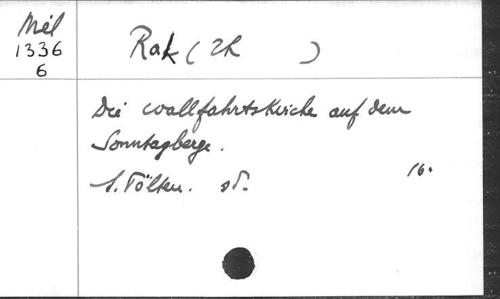 Mél
1336
6
Rak (
)
Die Wallfahrtskirche auf dem
Sonntagberge.
S. Pölten. sd.
16.